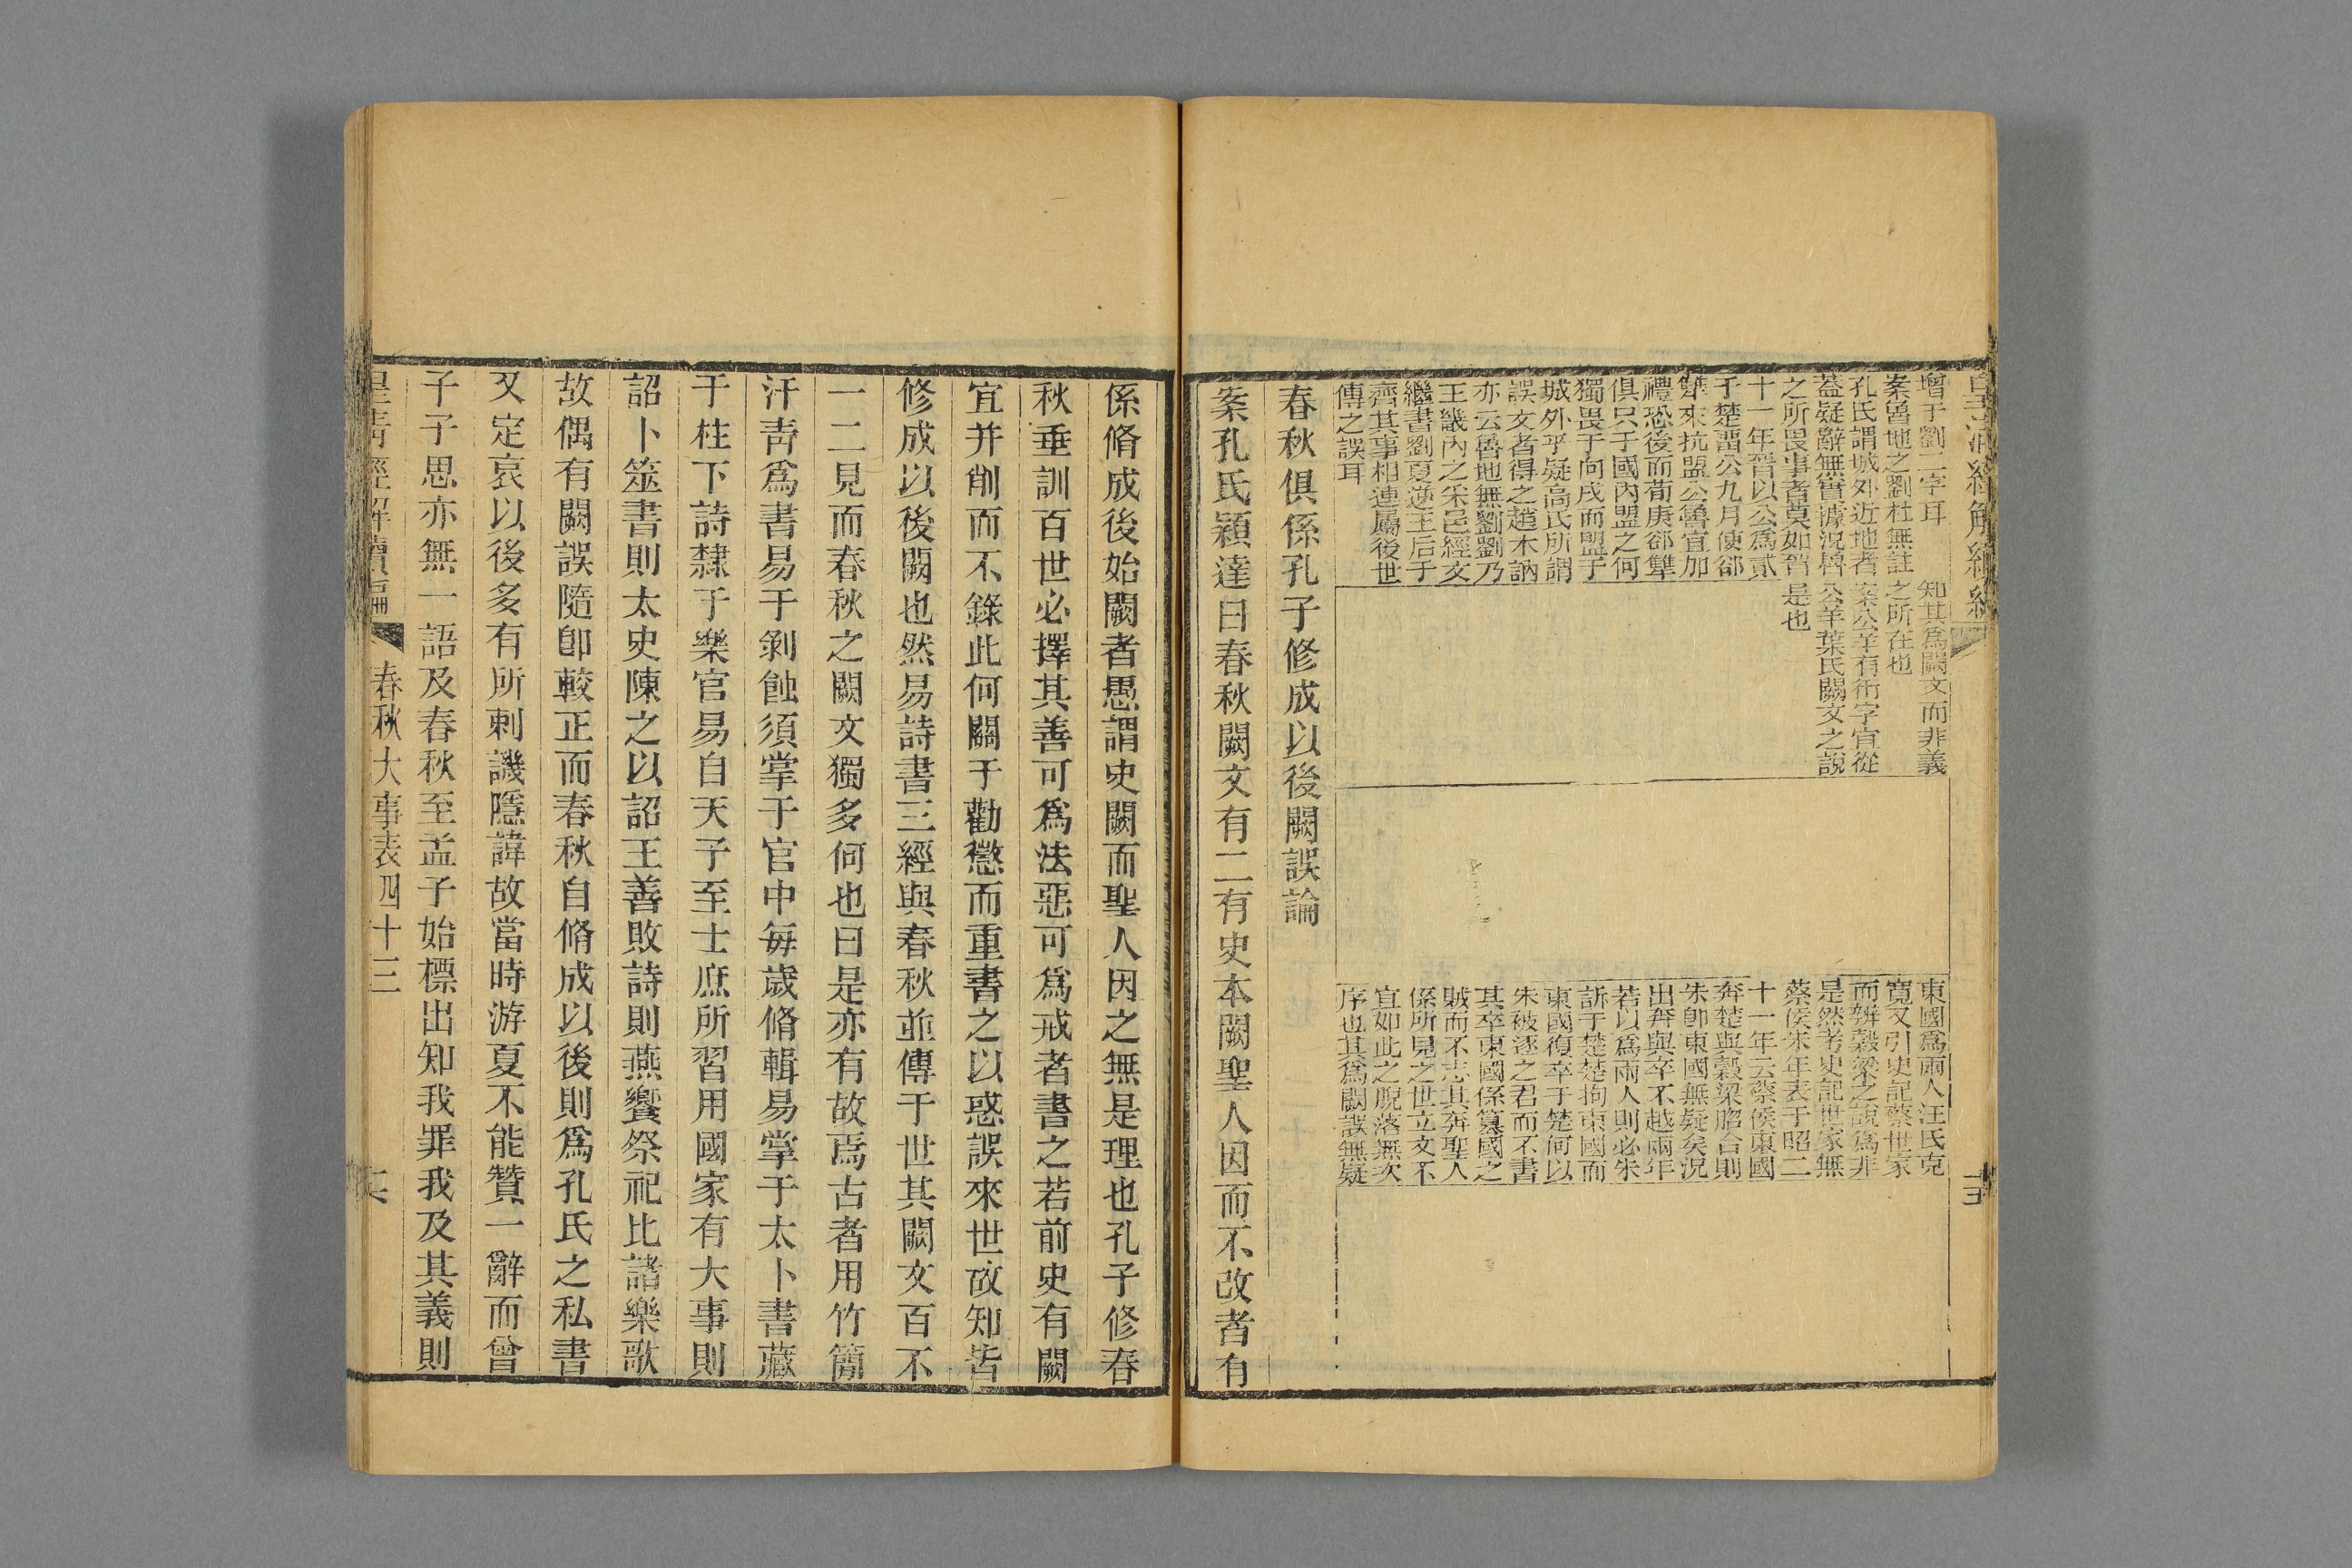 皇清經解續編
增于劉二字耳
案魯地之劉杜無註
孔氏謂城外近地者
蓋疑辭無實據況魯
之所畏事者莫如晉
十一年晉以公爲貳
于楚畱公九月使郤
犨來抗盟公魯宜加
禮恐後而荀庚郤犨
俱只于國內盟之何
獨畏于向戌而盟于
城外乎疑高氏所謂
誤文者得之趙木訥
亦云魯地無劉劉乃
王畿內之采邑經文
繼書劉夏逆王后于
齊其事相連屬後世
傳之誤耳
知其爲闕文而非義
之所在也
案公羊有衎字宜從
公羊葉氏闕文之說
是也
東國爲兩人汪氏克
寬又引史記蔡世家
而辨穀梁之說爲非
是然考史記世家無
蔡侯朱年表于昭二
十一年云蔡侯東國
奔楚與穀梁脗合則
朱卽東國無疑矣況
出奔與卒不越兩年
若以爲兩人則必朱
訴于楚楚拘東國而
東國復卒于楚何以
朱被逐之君而不書
其卒東國係篡國之
賊而不志其奔聖人
係所見之世立文不
宜如此之脫落無次
序也其爲闕誤無疑
春秋俱係孔子修成以後闕誤論
案孔氏穎達曰春秋闕文有二有史本闕聖人因而不改者有
係脩成後始闕者愚謂史闕而聖人因之無是理也孔子修春
秋垂訓百世必擇其善可爲法惡可爲戒者書之若前史有闕
宜并削而不錄此何關于勸懲而重書之以惑誤來世故知皆
修成以後闕也然易詩書三經與春秋並傳于世其闕文百不
一二見而春秋之闕文獨多何也曰是亦有故焉古者用竹簡
汗靑爲書易于剝蝕須掌于官中每歲脩輯易掌于太卜書藏
于柱下詩隸于樂官易自天子至士庶所習用國家有大事則
詔卜筮書則太史陳之以詔王善敗詩則燕饗祭祀比諸樂歌
故偶有闕誤隨卽較正而春秋自脩成以後則爲孔氏之私書
又定哀以後多有所刺譏隱諱故當時游夏不能贊一辭而曾
子子思亦無一語及春秋至孟子始標出知我罪我及其義則
皇清經解續編 春秋大事表四十三